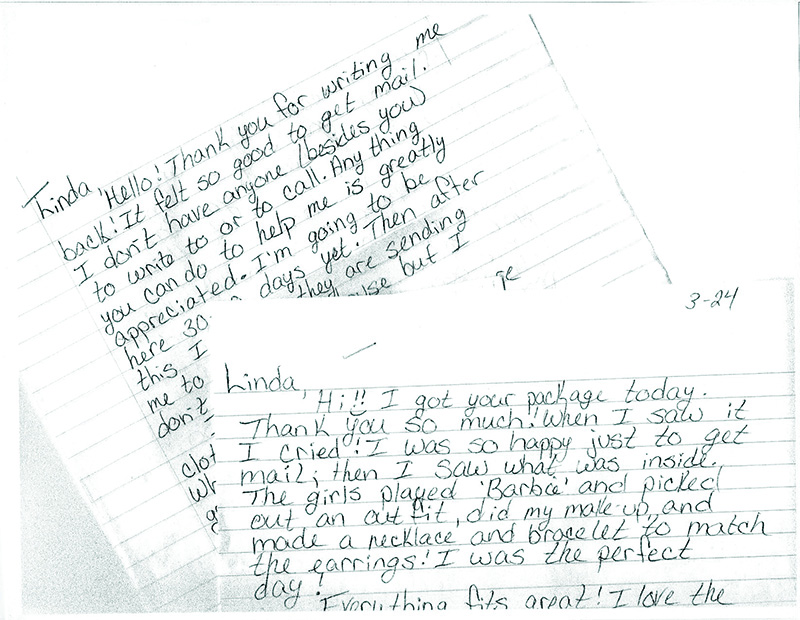 Linda, Hello! Thank you for writing me
back! It felt so good to get mail.
I don't have anyone (besides you)
to write to or to call. Any thing
you can do to help me is greatly
appreciated. I'm going to be
here 30 days yet. Then after
this I they are sending
me to but I
don't
clot
wh
3-24
Linda,
Hi!! I got your package today.
Thank you so much! When I saw it
I cried! I was so happy just to get
mail; then I saw what was inside.
The girls played 'Barbie' and picked
out an outfit, did my make-up, and
made a necklace and bracelet to match
the earrings! I was the perfect
day!
Everything fits great! I love the